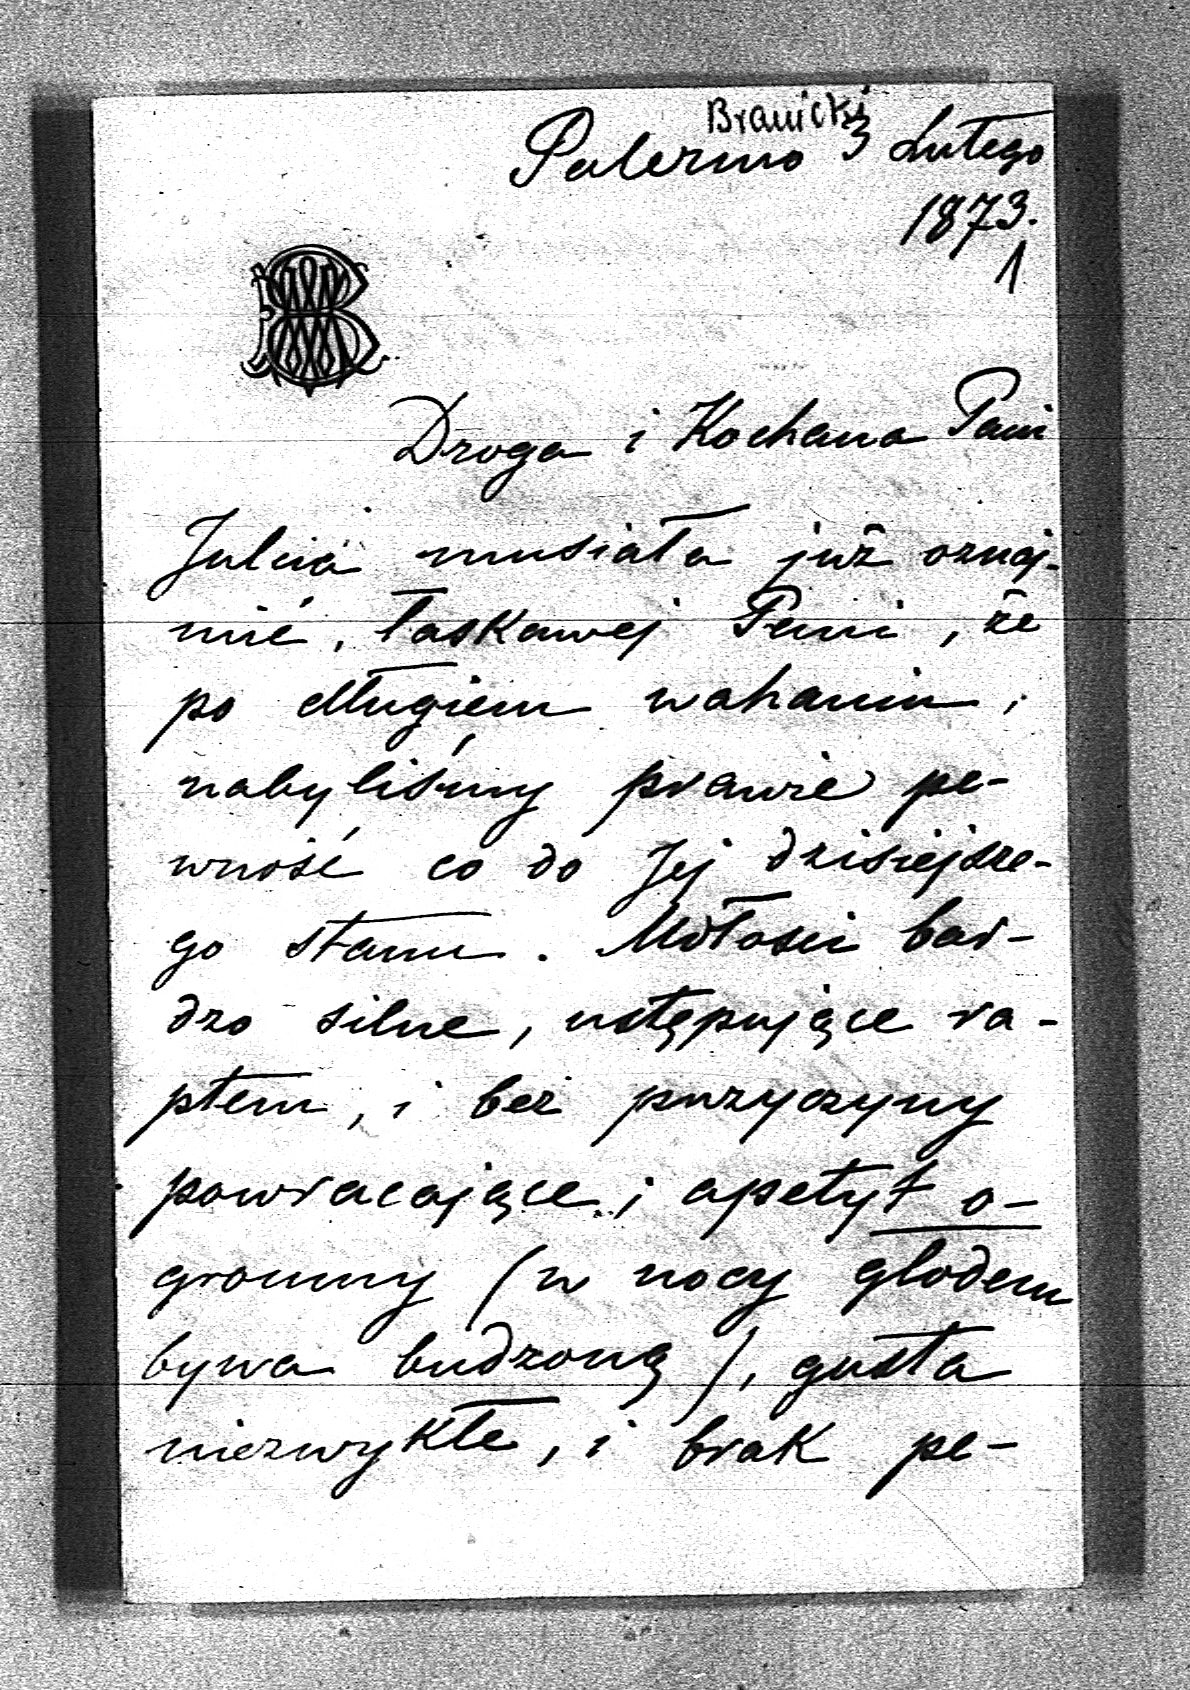 Branicki
Palermo 3 Lutego
1873.
1
Droga i Kochana Pani
Julcia musiała już oznaj-
mić, łaskawej Pani, że
po długiem wahaniu,
nabyliśmy prawie pe-
wność co do Jej dzisiejsze-
go stanu. Mdłości bar-
dzo silne, ustępujące ra-
ptem, i bez przyczyny
powracające; apetyt o-
gromny (w nocy głodem
bywa budzoną), gusta
niezwykłe, i brak pe-